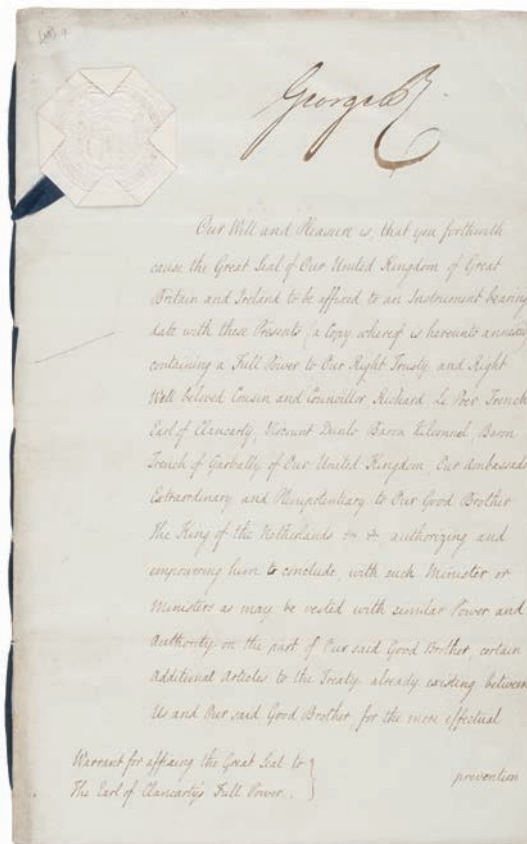 George R
Our Will and Pleasure is, that you forthwith
cause the Great Seal of Our United Kingdom of Great
Britain and Ireland to be affixed to an Instrument bearing
date with these Presents (a Copy whereof is hereunto annexed
containing a Full Power to Our Right Trusty and Right
Well beloved Cousin and Councillor, Richard Le Poer Trench
Earl of Clancarty, Viscount Dunlo Baron Kilconnel, Baron
Trench of Garbally of Our United Kingdom, Our Ambassado
Extraordinary and Plenipotentiary to Our Good Brother
The King of the Netherlands &c &c authorizing and
empowering him to conclude, with such Minister or
Ministers as may be vested with similar Power and
Authority on the part of Our said Good Brother, certain
Additional Articles to the Treaty already existing between
Us and Our said Good Brother, for the more effectual
Warrant for affixing the Great Seal to
The Earl of Clancarty's Full Power.
prevention